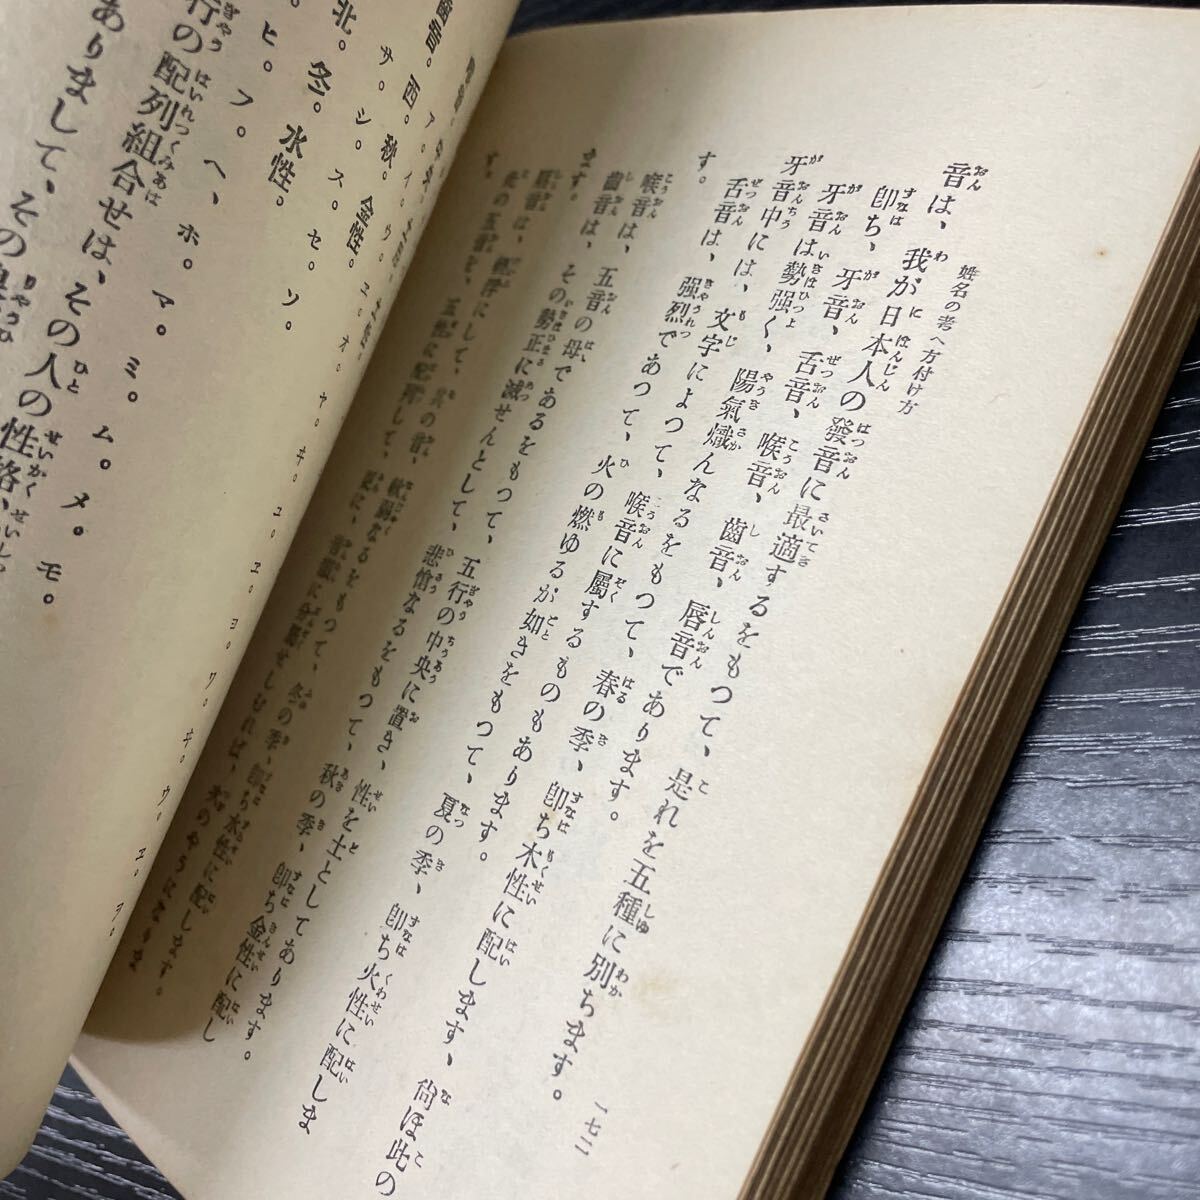 姓名の考へ方付け方
一七二
音は、我が日本人の發音に最適するをもつて、是れを五種に別ちます。
卽ち、牙音、舌音、喉音、齒音、唇音であります。
牙音は勢强く、陽氣熾んなるをもつて、春の季、卽ち木性に配します、尙ほ此の
牙音中には、文字によつて、喉音に屬するものもあります。
舌音は、强烈であつて、火の燃ゆるが如きをもつて、夏の季、卽ち火性に配しま
す。
喉音は、五音の母であるをもつて、五行の中央に置き、性を土としてあります。
齒音は、その勢正に滅せんとして、悲愴なるをもつて、秋の季、卽ち金性に配し
ます。
唇音は、輕浮にして、其の音、軟弱なるをもつて、冬の季、卽ち水性に配します。
此の五音を、五性に配列して、更に、音韻に分屬せしむれば、次のやうになりま
す。
ア。イ。ウ。エ。オ。ヤ。ヰ。ユ。エ。ヨ。ワ。ヰ。ウ。ヱ。ヲ。
齒音。西。秋。金性。
サ。シ。ス。セ。ソ。
北。冬。水性。
ヒ。フ。ヘ、ホ。マ。ミ。ム。メ。モ。
行の配列組合せは、その人の性格、
ありまして、その